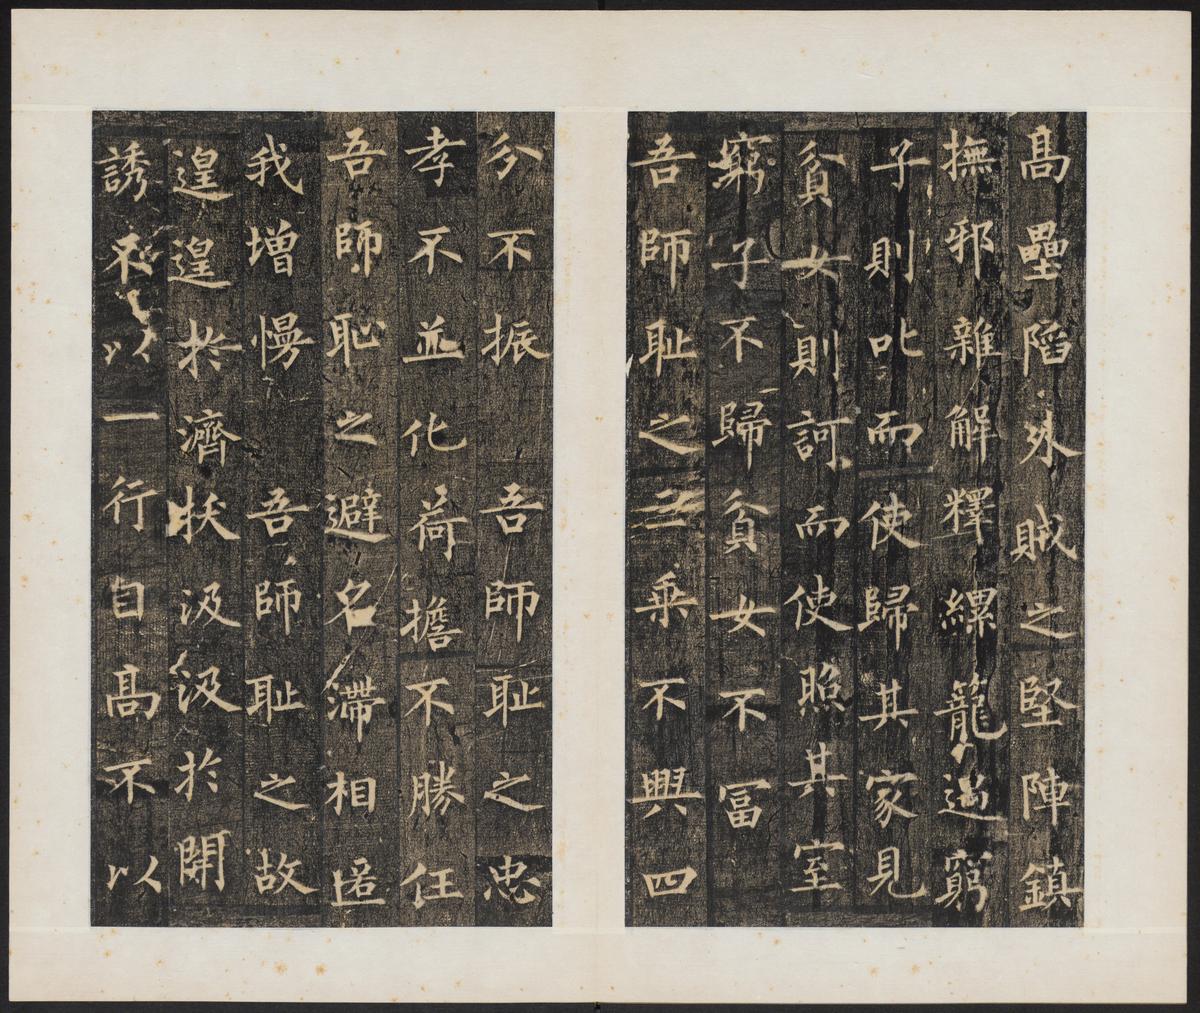 高壘陷外賊之堅陣鎮
撫邪雜解釋縲籠遇窮
子則叱而使歸其家見
貧女則訶而使照其室
窮子不歸貧女不富
吾師耻之三乘不興四
分不振吾師耻之忠
孝不並化荷擔不勝任
吾師恥之避名滯相匿
我增慢吾師耻之故
遑遑於濟狀汲汲於開
誘不以一行自高不以